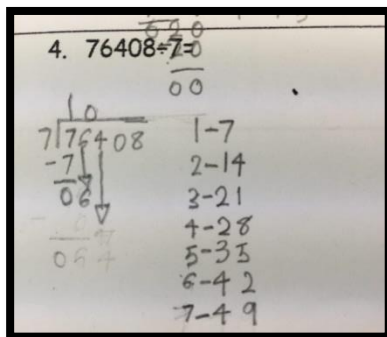 620
4. 76408÷7=
20
00
10
7|76408
-7
06
064
1-7
2-14
3-21
4-28
5-35
6-42
7-49